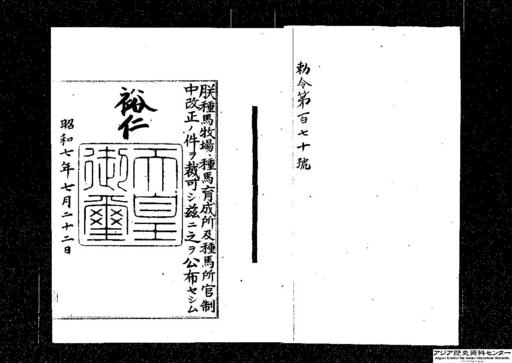 勅令第百七十號
朕種馬牧場、種馬育成所及種馬所官制
中改正ノ件ヲ裁可シ茲ニ之ヲ公布セシム
裕仁
天皇
御璽
昭和七年七月二十二日
アジア歴史資料センター
Japan Center for Asian Historical Records